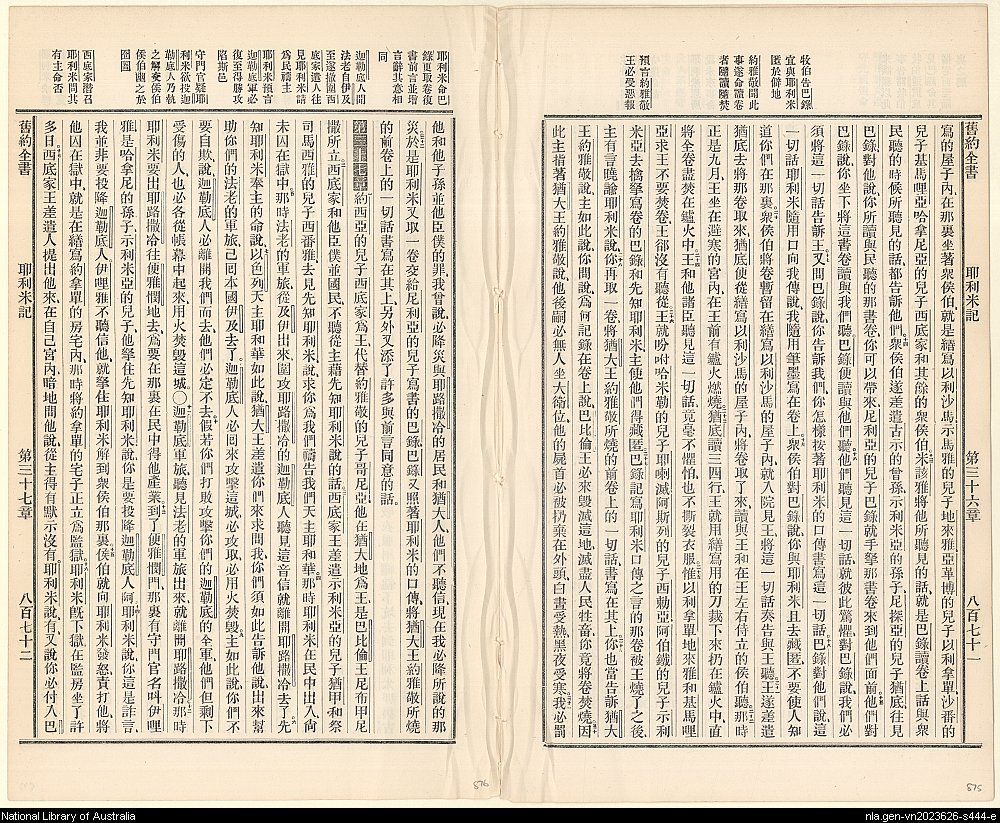 舊約全書 耶利米記 第三十六章 八百七十一
牧伯告巴錄
宜與耶利米
匿於僻地
約雅敬聞此
事遂命讀卷
者隨讀隨焚
預言約雅敬
王必受惡報
寫的屋子內在那裏坐著衆侯伯就是繕寫以利沙馬示馬雅的兒子地來雅亞革博的兒子以利拿單沙番的
兒子基馬哩亞哈拿尼亞的兒子西底家和其餘的衆侯伯米該雅將他所聽見的話就是巴錄讀卷上話與衆
民聽的時候所聽見的話都告訴他們衆侯伯遂差遣古示的曾孫示利米亞的孫子尼探亞的兒子猶底往見
巴錄對他說你所讀與民聽的那書卷你可以帶來尼利亞的兒子巴錄就手拏那書卷來到他們面前他們對
巴錄說你坐下將這書卷讀與我們聽巴錄便讀與他們聽他們聽見這一切話就彼此驚懼對巴錄說我們必
須將這一切話告訴王又問巴錄說你告訴我們你怎樣按著耶利米的口傳書寫這一切話巴錄對他們說這
一切話耶利米隨用口向我傳說我隨用筆墨寫在卷上衆侯伯對巴錄說你與耶利米且去藏匿不要使人知
道你們在那裏衆侯伯將卷暫留在繕寫以利沙馬的屋子內就入院見王將這一切話奏告與王聽王遂差遣
猶底去將那卷取來猶底便從繕寫以利沙馬的屋子內將卷取了來讀與王和在王左右侍立的侯伯聽那時
正是九月王坐在避寒的宮內在王前有鑪火燃燒猶底讀三四行王就用繕寫用的刀裁下來扔在鑪火中直
將全卷盡焚在鑪火中王和他諸臣聽見這一切話竟毫不懼怕也不撕裂衣服惟以利拿單地來雅和基馬哩
亞求王不要焚卷王卻沒有聽從王就吩咐哈米勒的兒子耶喇滅阿斯列的兒子西勅亞阿伯鐵的兒子示利
米亞去擒拏寫卷的巴錄和先知耶利米主使他們得藏匿巴錄記寫耶利米口傳之言的那卷被王燒了之後
主有言曉諭耶利米說你再取一卷將猶大王約雅敬所燒的前卷上的一切話書寫在其上你也當告訴猶大
王約雅敬說主如此說你問說爲何記錄在卷上說巴比倫王必來毀滅這地滅盡人民牲畜你竟將卷焚燒因
此主指著猶大王約雅敬說他後嗣必無人坐大衛位他的屍首必被扔棄在外頭白晝受熱黑夜受寒我必罰
耶利米命巴
錄更取卷復
書前言並增
言辭其意相
同
迦勒底人聞
法老自伊及
至遂撤圍西
底家遣人往
見耶利米請
爲民禱主
耶利米預言
迦勒底軍必
復至得勝攻
陷斯邑
守門官疑耶
利米欲投迦
勒底人乃執
之解交侯伯
侯伯幽之於
囹圄
西底家潛召
耶利米問其
有主命否
他和他子孫並他臣僕的罪我曾說必降災與耶路撒冷的居民和猶大人他們不聽信現在我必降所說的那
災於是耶利米又取一卷交給尼利亞的兒子寫書的巴錄巴錄又照著耶利米的口傳將猶大王約雅敬所燒
的前卷上的一切話書寫在其上另外又添了許多與前言同意的話
第三十七章約西亞的兒子西底家爲王代替約雅敬的兒子哥尼亞他在猶大地爲王是巴比倫王尼布甲尼
撒所立西底家和他臣僕並國民不聽從主藉先知耶利米說的話西底家王差遣示利米亞的兒子猶甲和祭
司馬西雅的兒子西番雅去見先知耶利米說求你爲我們禱告我們天主耶和華那時耶利米在民中出入尙
未囚在獄中那時法老的軍旅從及伊出來圍攻耶路撒冷的迦勒底人聽見這音信就離開耶路撒冷去了先
知耶利米奉主的命說以色列天主耶和華如此說猶大王差遣你們來求問我你們須如此告訴他說出來幫
助你們的法老的軍旅已囘本國伊及去了迦勒底人必囘來攻擊這城必攻取必用火焚毀主如此說你們不
要自欺說迦勒底人必離開我們而去他們必定不去假若你們打敗攻擊你們的迦勒底的全軍他們但剩下
受傷的人也必各從帳幕中起來用火焚毀這城〇迦勒底軍旅聽見法老的軍旅出來就離開耶路撒冷那時
耶利米要出耶路撒冷往便雅憫地去爲要在那裏在民中得他產業到了便雅憫門那裏有守門官名呌伊哩
雅是哈拿尼的孫子示利米亞的兒子他拏住先知耶利米說你是要投降迦勒底人阿耶利米說你這是誑言
我並非要投降迦勒底人伊哩雅不聽信他就拏住耶利米解到衆侯伯那裏侯伯就向耶利米發怒責打他將
他囚在獄中就是在繕寫約拿單的房宅內那時將約拿單的宅子正立爲監獄耶利米旣下獄在監房坐了許
多日西底家王差遣人提出他來在自己宮內暗地問他說從主得有默示沒有耶利米說有又說你必付入巴
舊約全書 耶利米記 第三十七章 八百七十二
876
875
National Library of Australia
nla.gen-vn2023626-s444-e